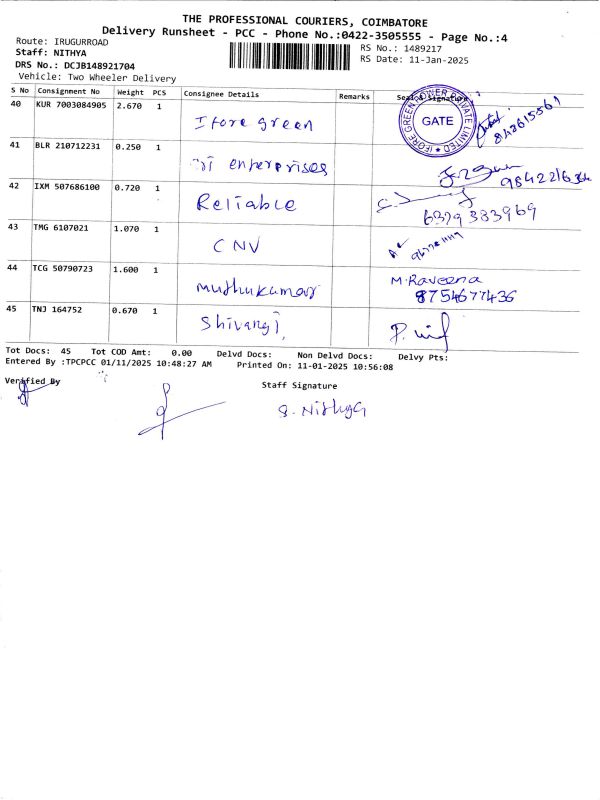 THE PROFESSIONAL COURIERS, COIMBATORE
Delivery Runsheet - PCC - Phone No.:0422-3505555 - Page No.:4
Route: IRUGURROAD
RS No.: 1489217
Staff: NITHYA
RS Date: 11-Jan-2025
DRS No.: DCJB148921704
Vehicle: Two Wheeler Delivery
S No Consignment No Weight PCS Consignee Details Remarks Seal & Signature
40 KUR 7003084905 2.670 1 Ifore green
IFORE GREEN POWER PRIVATE LIMITED
GATE
41 BLR 210712231 0.250 1 enterprises
42 IXM 507686100 0.720 1 Reliable
6379383969
43 TMG 6107021 1.070 1 CNV
44 TCG 50790723 1.600 1 Muthukumar M.Raveena
8754677436
45 TNJ 164752 0.670 1 Shivangi
Tot Docs: 45 Tot COD Amt: 0.00 Delvd Docs: Non Delvd Docs: Delvy Pts:
Entered By :TPCPCC 01/11/2025 10:48:27 AM Printed On: 11-01-2025 10:56:08
Verified By
Staff Signature
S. Nithya